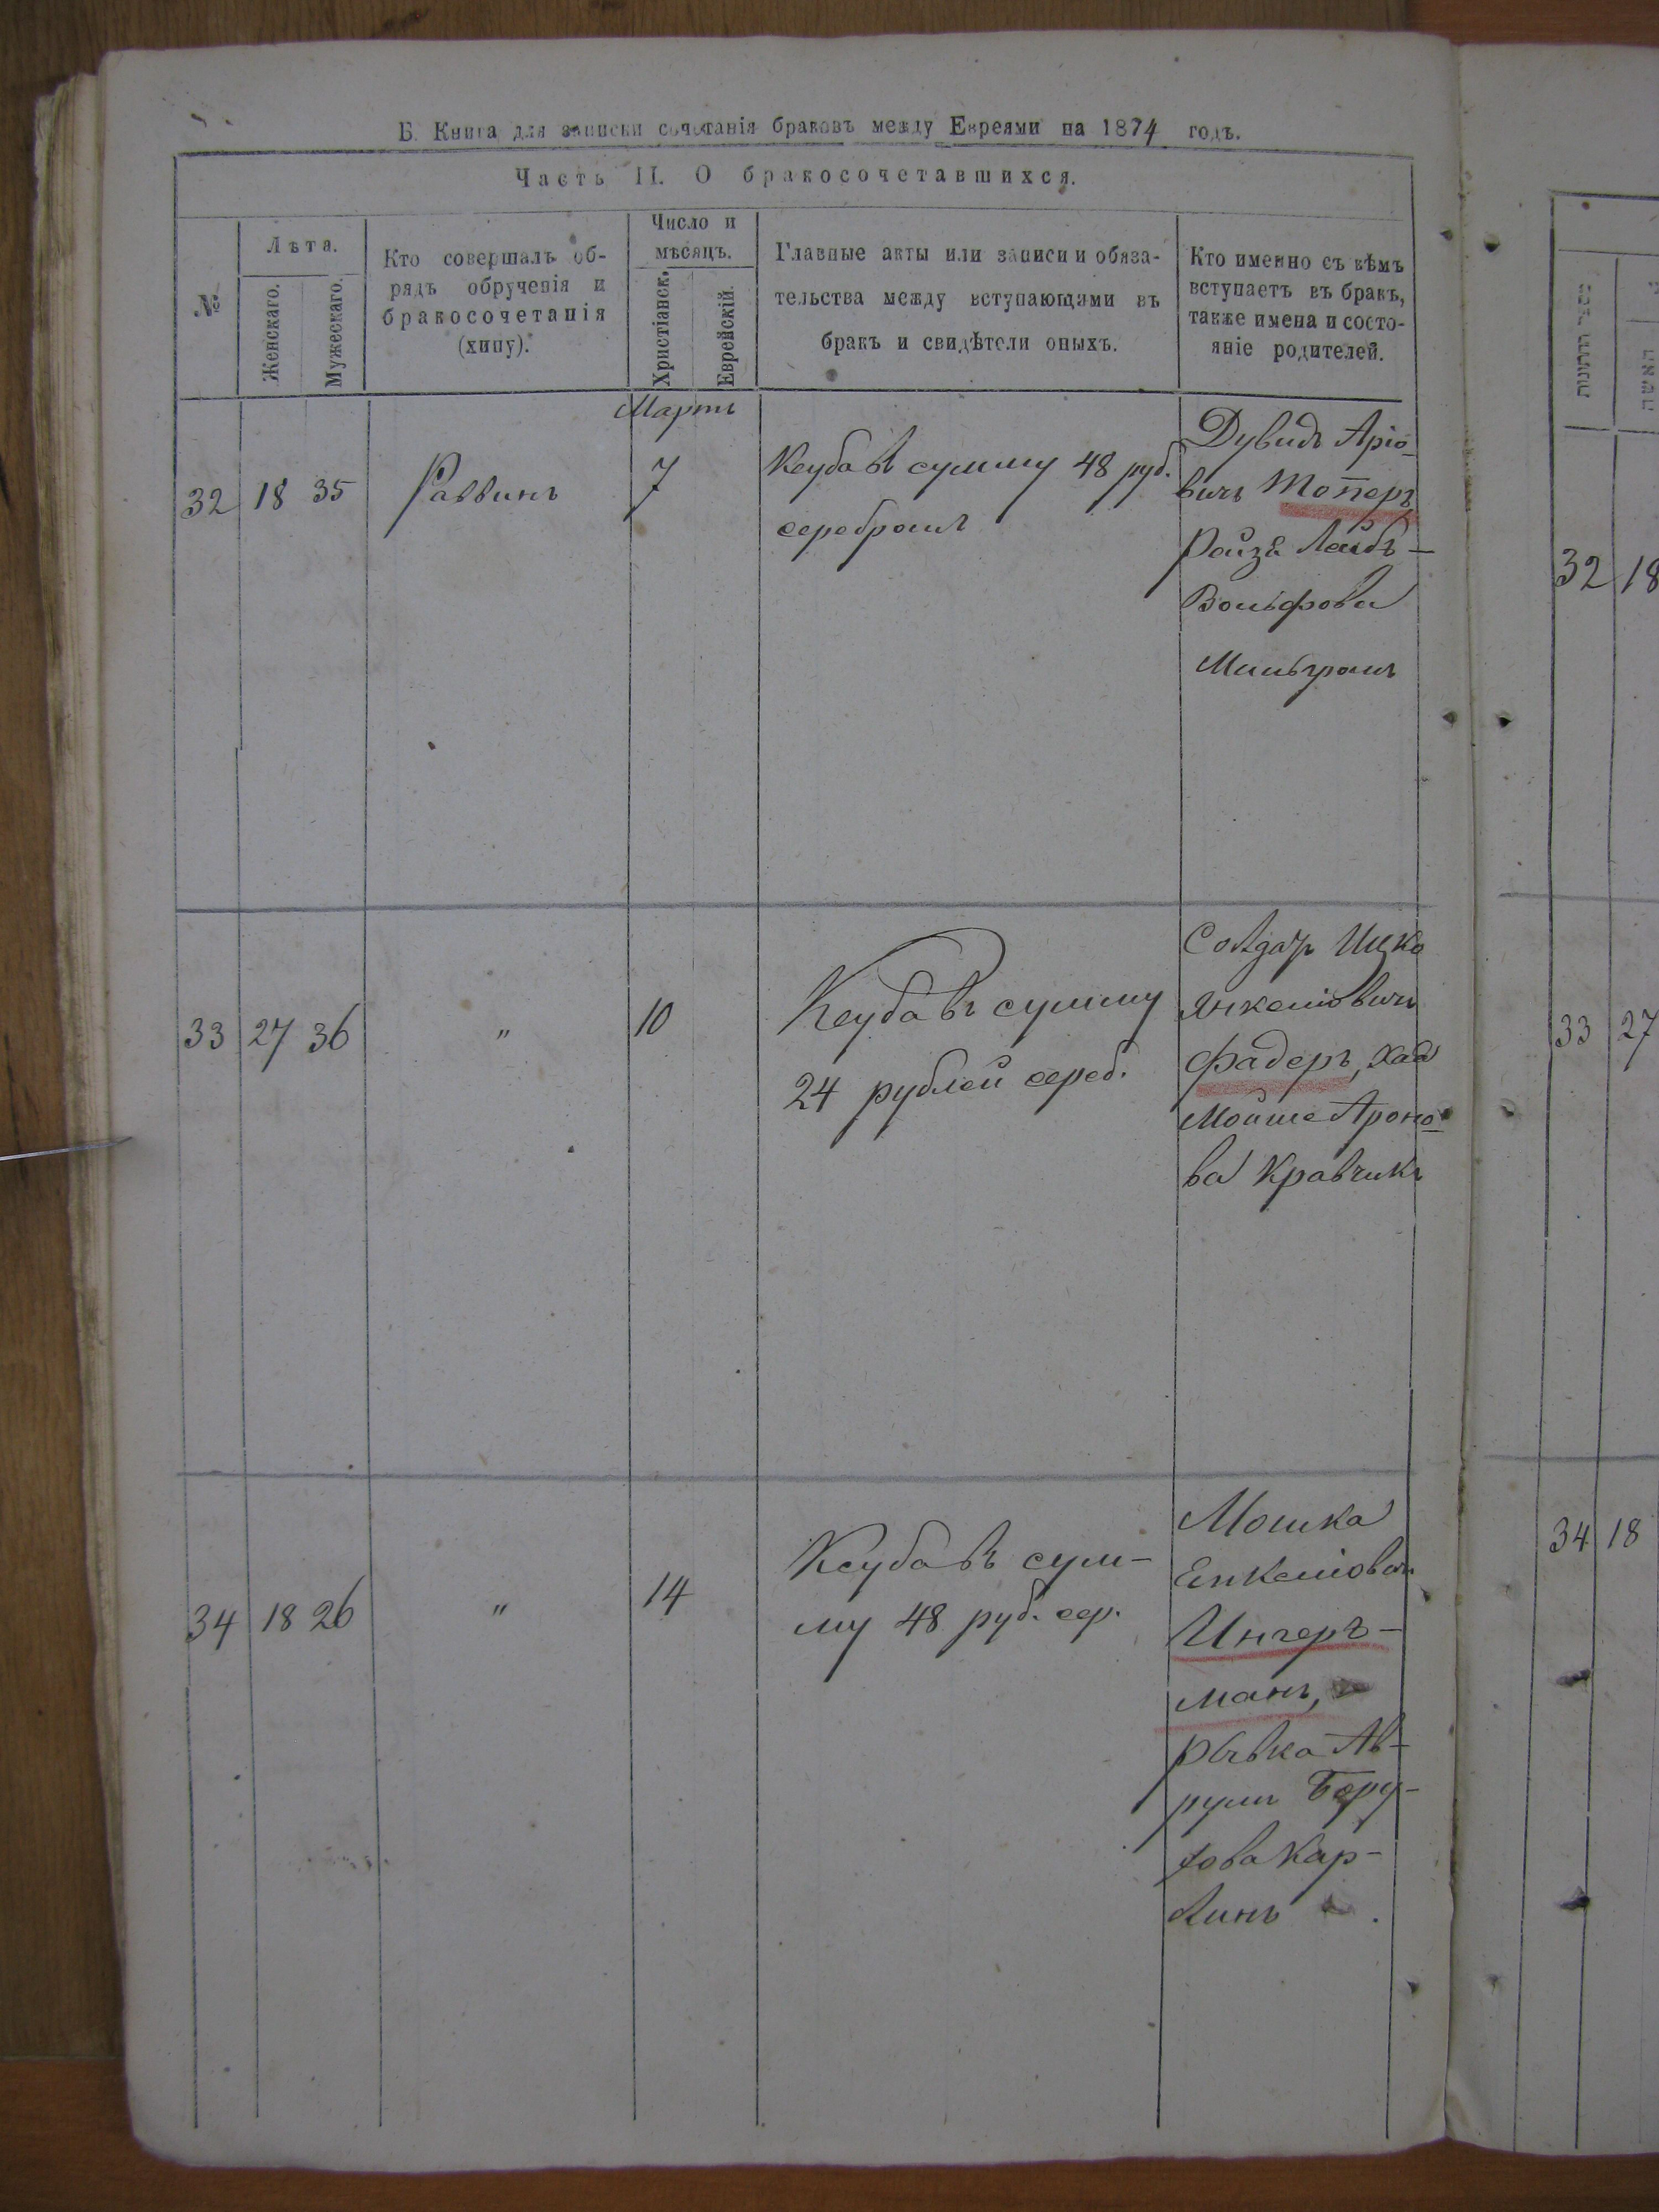 Б. Книга для записки сочетанія браковъ между Евреями на 1874 годъ.
Часть II. О бракосочетавшихся.
№
Лѣта.
Женскаго.
Мужескаго.
Кто совершалъ об-
рядъ обрученія и
бракосочетанія
(хипу).
Число и
мѣсяцъ.
Христіанск.
Еврейскій.
Главные акты или записи и обяза-
тельства между вступающими въ
бракъ и свидѣтели оныхъ.
Кто именно съ кѣмъ
вступаетъ въ бракъ,
также имена и состо-
яніе родителей.
Мартъ
32 18 35 Раввинъ 7
Ксуба въ сумму 48 руб.
серебромъ
Дувидъ Аріо-
вичъ Топеръ
Ройза Лейбъ-
Вольфова
Мильгромъ
33 27 36 " 10
Ксуба въ сумму
24 рублей сереб.
Солдат Ицко
Янкеліовичъ
Фадеръ, Хая
Мойше Ароно-
ва Кравчикъ
34 18 26 " 14
Ксуба въ сум-
му 48 руб. сер.
Мошка
Енкеліович
Ингеръ-
манъ,
Рывка Ав-
румъ Бору-
хова Кар-
линъ
32 18
33 27
34 18